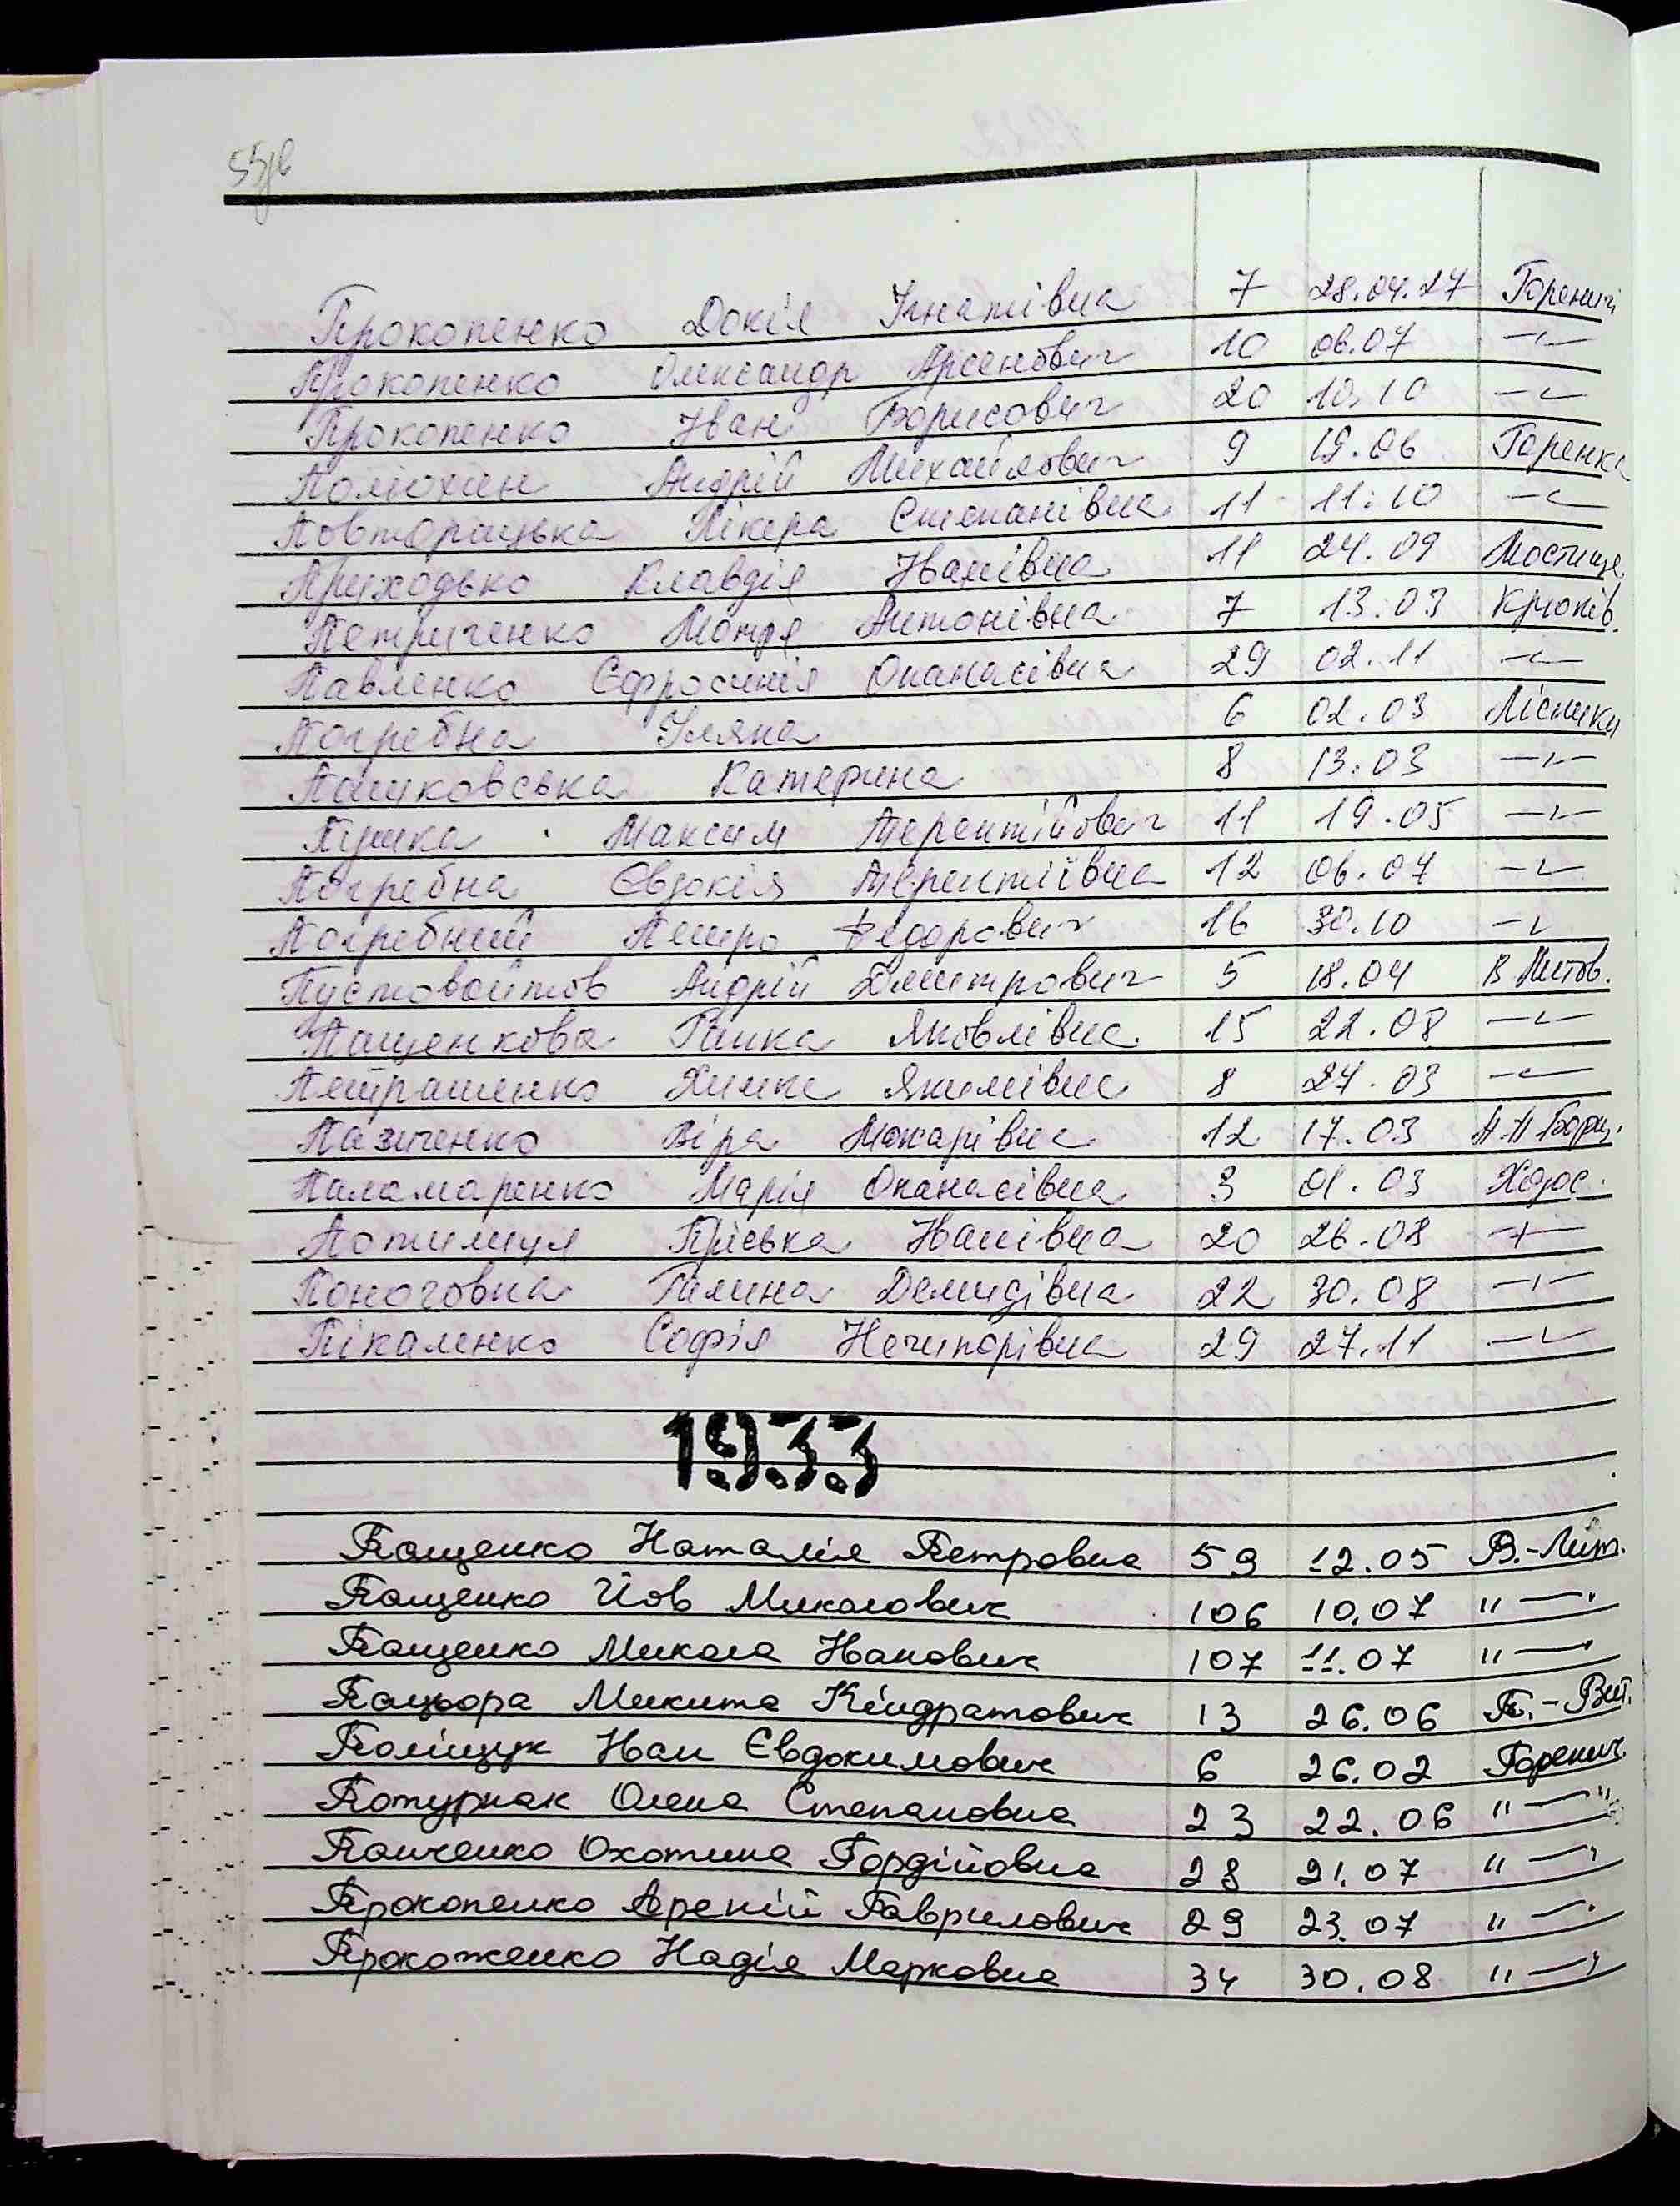 Прокопенко Докія Ігнатівна 7 28.04.27 Гореничі
Прокопенко Олександр Арсенович 10 06.07 —〃—
Прокопенко Іван Борисович 20 10.10 —〃—
Полюхин Андрій Михайлович 9 19.06 Горенка
Повторацька Лікера Степанівна 11 11.10 —〃—
Приходько Клавдія Іванівна 11 24.09 Мостище
Петриченко Мотря Антонівна 7 13.03 Крюків.
Павленко Єфросинія Опанасівна 29 02.11 —〃—
Погребна Уляна 6 02.03 Лісники
Пашковська Катерина 8 13.03 —〃—
Пушка Максим Терентійович 11 19.05 —〃—
Погребна Євдокія Терентіївна 12 06.07 —〃—
Погребний Петро Федорович 16 30.10 —〃—
Пустовойтов Андрій Дмитрович 5 18.04 В Литов.
Пащенкова Ганка Яковлівна 15 22.08 —〃—
Петрашенко Химка Якимівна 8 27.03 —〃—
Пазиченко Віра Макарівна 12 17.03 П.П Борщ.
Паламаренко Марія Опанасівна 3 01.03 Ходос.
Потилиця Пріська Іванівна 20 26.08 —〃—
Галина Демидівна 22 30.08 —〃—
Пікаленко Софія Нечипорівна 29 27.11 —〃—
1933
Пащенко Наталія Петровна 59 12.05 В.-Лит.
Пащенко Йов Миколович 106 10.07 〃—〃
Пащенко Микола Іванович 107 11.07 〃—〃
Пацьора Микита Кіндратович 13 26.06 П.-Вит.
Поліщук Іван Євдокимович 6 26.02 Горенич.
Потурнак Олена Степановна 23 22.06 〃—〃
Панченко Охотина Гордійовна 28 21.07 〃—〃
Прокопенко Гаврилович 29 23.07 〃—〃
Прокоженко Надія Марковна 34 30.08 〃—〃